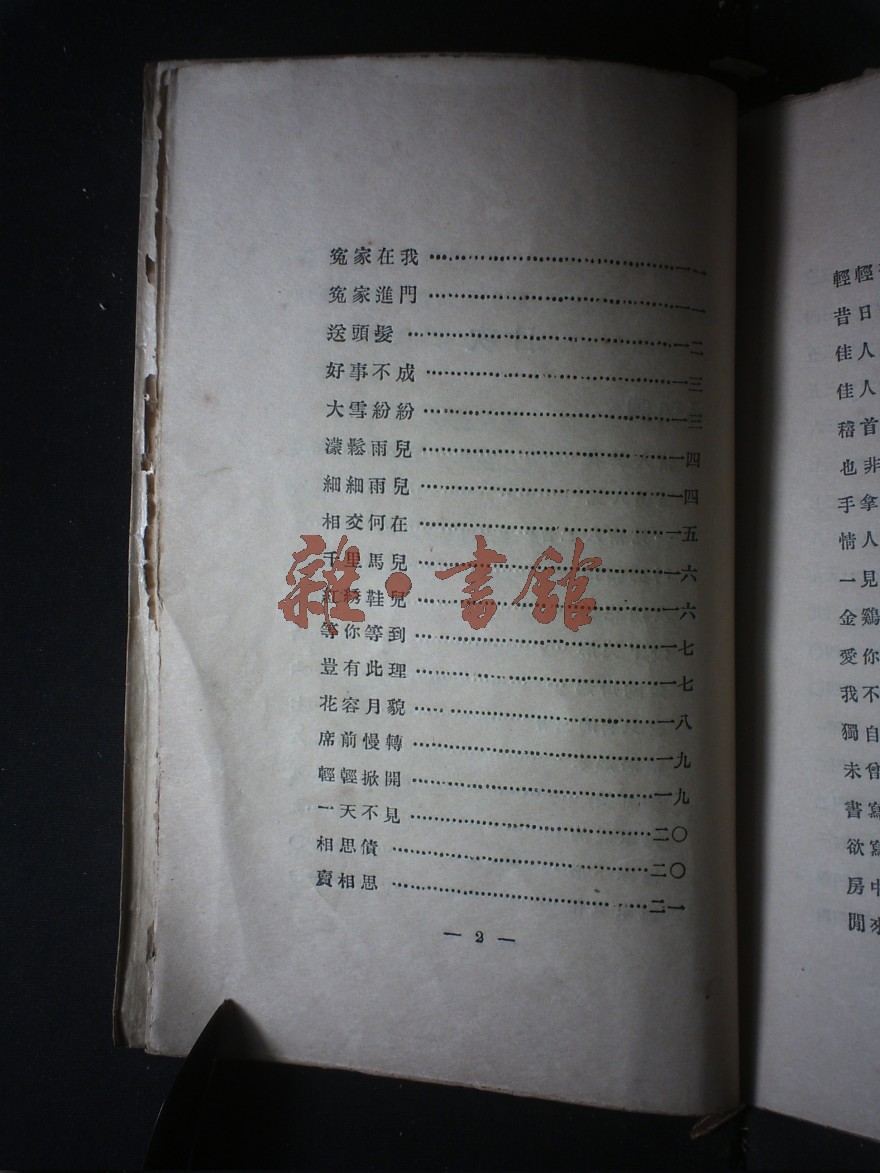 冤家在我…………一一
冤家進門…………一一
送頭髮…………一二
好事不成…………一三
大雪紛紛…………一三
濛鬆雨兒…………一四
細細雨兒…………一四
相交何在…………一五
千里馬兒…………一六
紅綉鞋兒…………一六
等你等到…………一七
豈有此理…………一七
花容月貌…………一八
席前慢轉…………一九
輕輕掀開…………一九
一天不見…………二〇
相思債…………二〇
賣相思…………二一
— 2 —
雜·書館
輕輕
昔日
佳人
佳人
稽首
也非
手拿
情人
一見
金鷄
愛你
我不
獨自
未曾
書寫
欲寫
房中
閒來